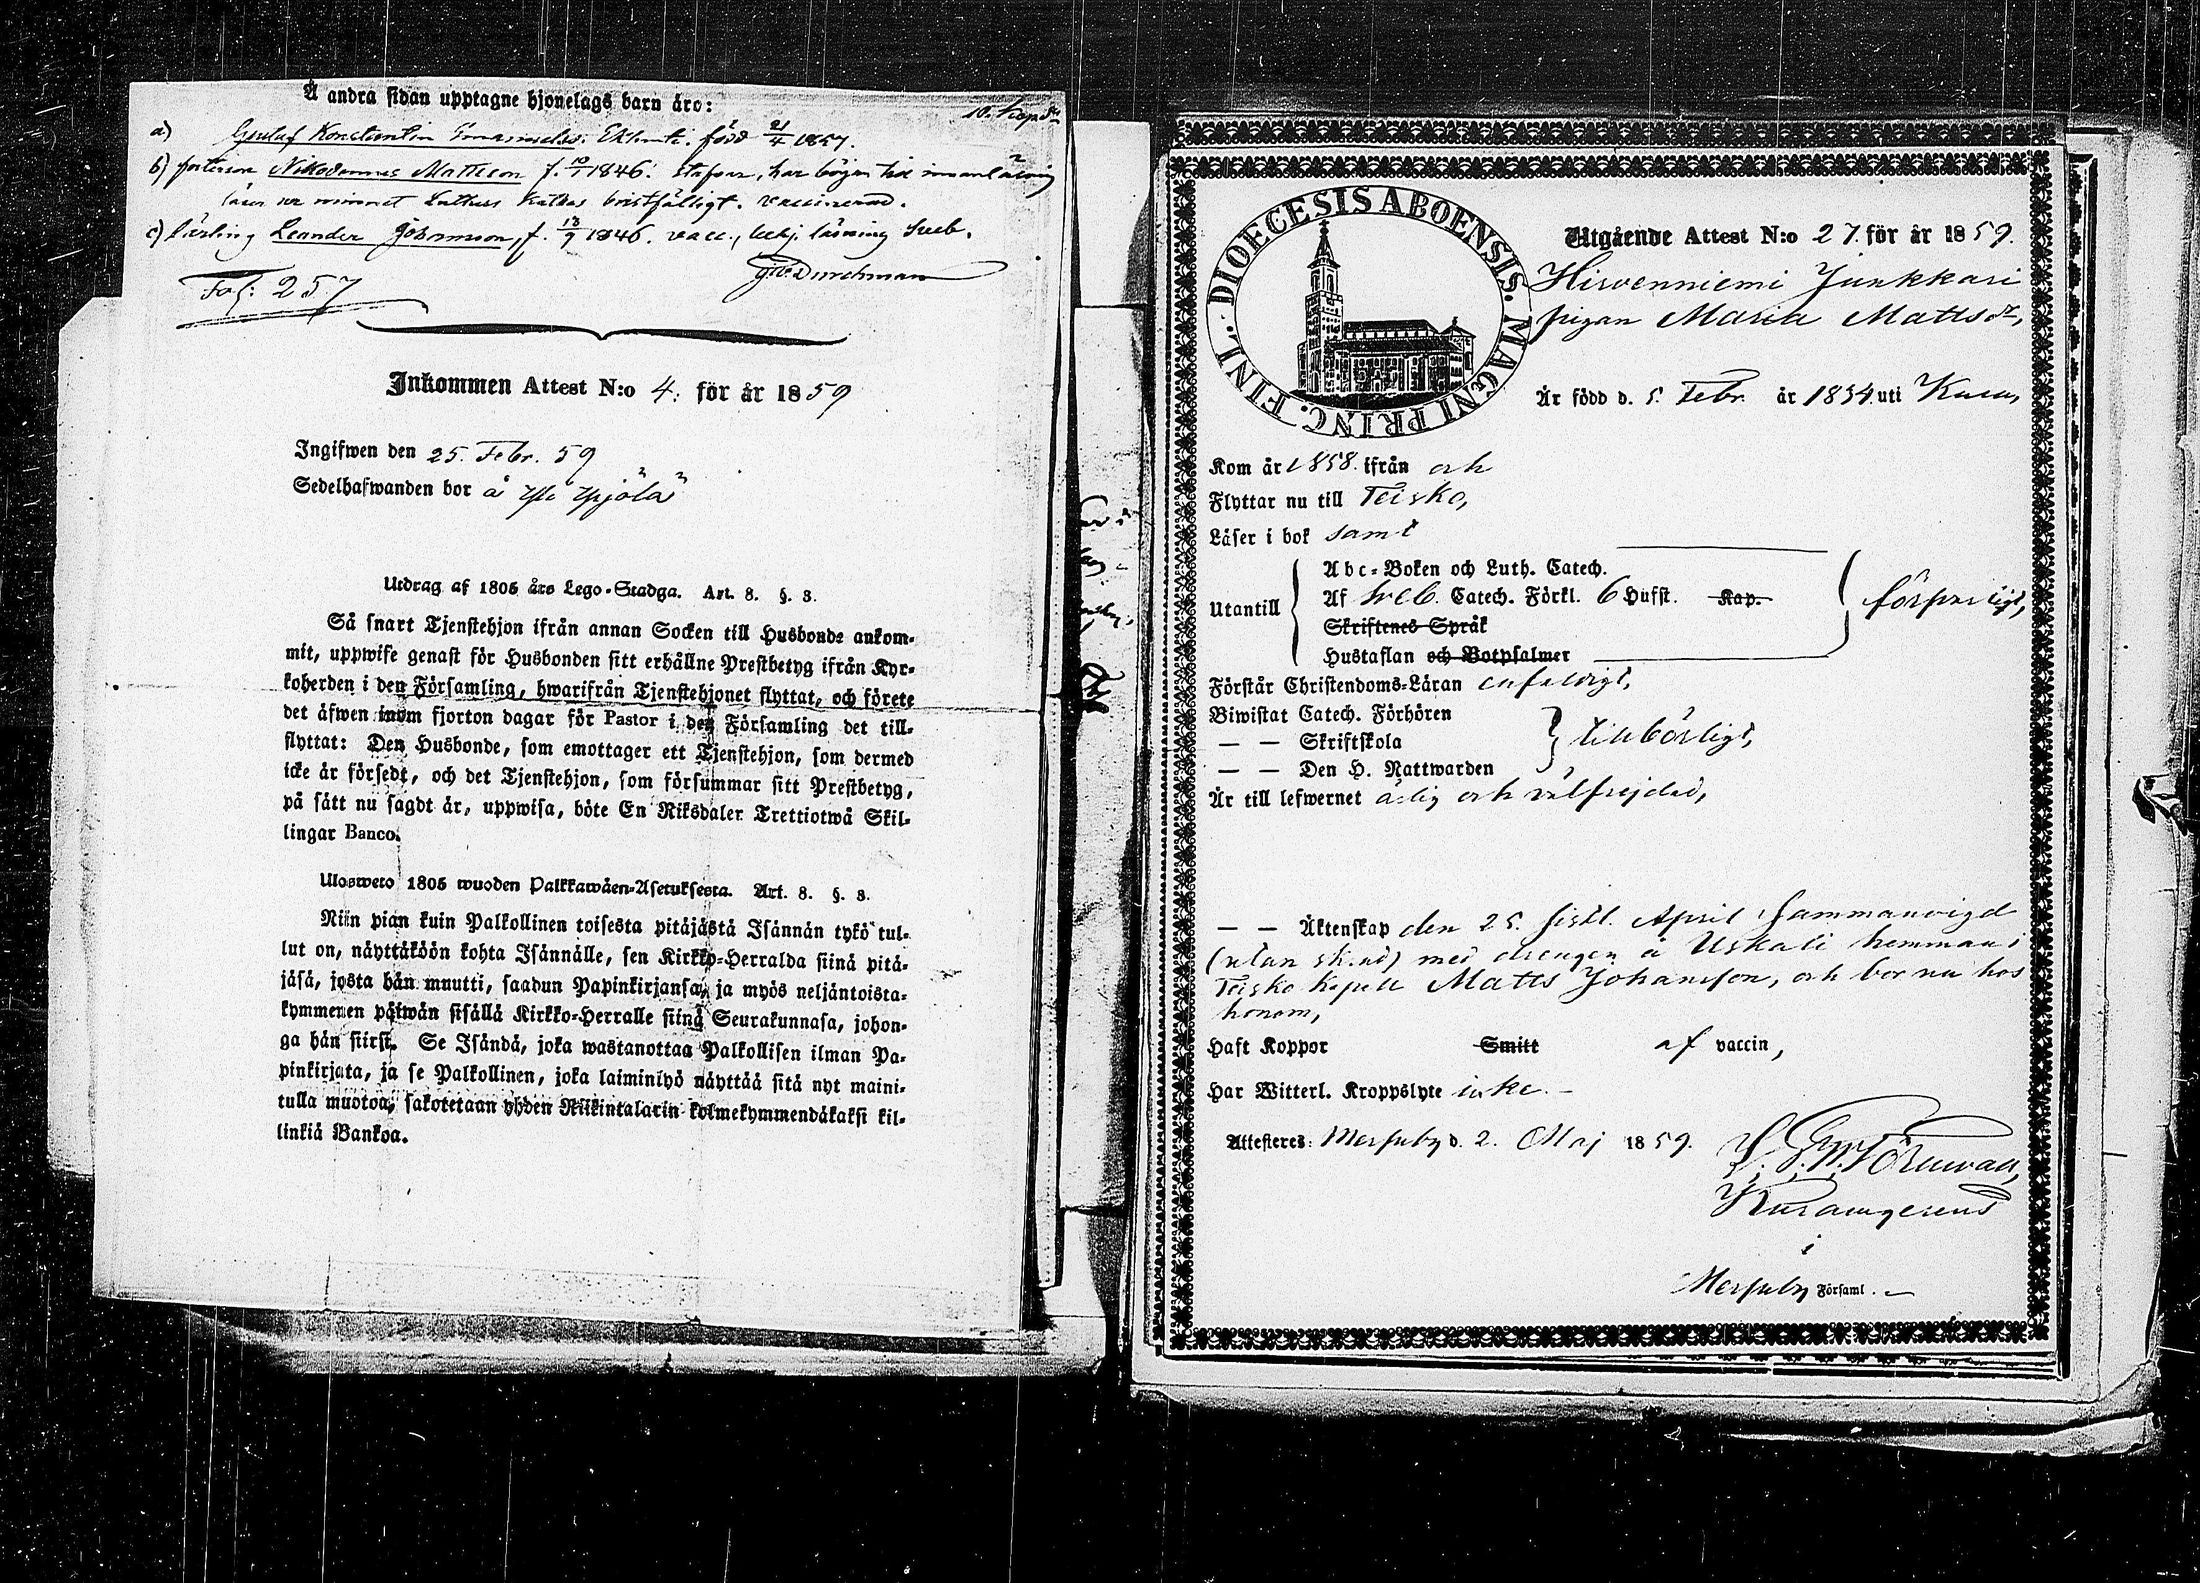 Å andra sidan upptagne hjonelags barn äro:
a) Gustaf Konstantin Emanuelss. född 21/4 1857.
b) Nikodemus Mattsson f. 10/1 1846. stafvar, har börjat
minnet Luthers bristfälligt. vaccinerad.
c) lärling Leander Johansson, f. 13/9 1846. vacc., läsning Sveb.
Durchman
Fol: 257
Inkommen Attest N:o 4. för år 1859
Ingifwen den 25. Febr. 59
Sedelhafwanden bor å
Utdrag af 1805 års Lego-Stadga. Art. 8. §. 3.
Så snart Tjenstehjon ifrån annan Socken till Husbonde ankom-
mit, uppwise genast för Husbonden sitt erhållne Prestbetyg ifrån Kyr-
koherden i den Församling, hwarifrån Tjenstehjonet flyttat, och förete
det äfwen inom fjorton dagar för Pastor i den Församling det till-
flyttat: Den Husbonde, som emottager ett Tjenstehjon, som dermed
icke är försedt, och det Tjenstehjon, som försummar sitt Prestbetyg,
på sätt nu sagdt är, uppwisa, böte En Riksdaler Trettiotwå Skil-
lingar Banco.
Ulosweto 1805 wuoden Palkkawäen-Asetuksesta. Art. 8. §. 3.
Niin pian kuin Palkollinen toisesta pitäjästä Isännän tykö tul-
lut on, näyttäköön kohta Isännälle, sen Kirkko-Herralda siinä pitä-
jäsä, josta hän muutti, saadun Papinkirjansa, ja myös neljäntoista-
kymmenen päiwän sisällä Kirkko-Herralle siinä Seurakunnasa, johon-
ga hän siirsi. Se Isändä, joka wastanottaa Palkollisen ilman Pa-
pinkirjata, ja se Palkollinen, joka laiminlyö näyttää sitä nyt maini-
tulla muotoa, sakotetaan yhden Riikintalarin kolmekymmendäkaksi kil-
linkiä Bankoa.
DIOECESIS ABOENSIS. MAGNI PRINC. FINL.
Utgående Attest N:o 27. för år 1859.
Hirvenniemi Junkkari
pigan Maria Mattsdr,
Är född d. 5. Febr. år 1834 uti
Kom år 1858. ifrån och
Flyttar nu till Teisko,
Läser i bok samt
Utantill
Abc-Boken och Luth. Catech.
Af Sveb. Catech. Förkl. 6 Hufst. Kap.
Skriftenes Språk
Hustaflan och Botpsalmer
försvarligt,
Förstår Christendoms-Läran enfaldigt,
Biwistat Catech. Förhören
— — Skriftskola
— — Den H. Nattwarden
tillbörligt,
Är till lefwernet ärlig och välfrejdad,
— — Äktenskap den 25. sistl. April sammanvigd
(utan sked) med drengen å Uskali hemman i
Teisko Kapell Matts Johansson, och bor nu hos
honom,
Haft Koppor Smitt af vaccin,
Har Witterl. Kroppslyte icke. —
Attesteres: Messuby d. 2. Maj 1859.
i
Messuby Församl. —